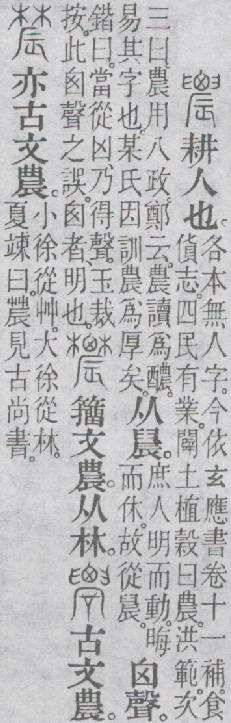 耕人也。
各本無人字。今依玄應書卷十一補。食
貨志。四民有業。闢土植穀曰農。洪範。次
三曰農用八政。鄭云。農讀爲醲。
易其字也。某氏因訓農爲厚矣。
从晨。
庶人明而動。晦
而休。故從晨。
囟聲。
鍇曰。當從凶乃得聲。玉裁
按。此囟聲之誤。囟者明也。
籒文農。从林。
古文農。
亦古文農。
小徐從艸。大徐從林。
夏竦曰。見古尚書。